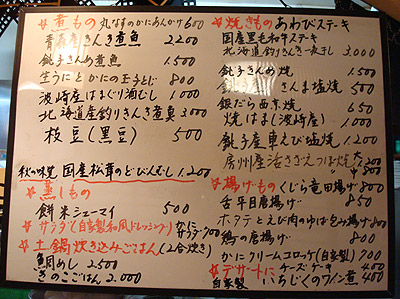 ☆煮もの 丸なすのかにあんかけ 600
青森産きんき煮魚 2200
銚子きんめ煮魚 1.500
生うにとかにの玉子とじ 800
波崎産はまぐり酒むし 1.000
北海道産釣りきんき煮魚 3.000
枝豆(黒豆) 500
秋の味覚 国産松茸のどびんむし 1.200
☆蒸しもの
餅米シューマイ 500
☆サラダ(自家製和風ドレッシング) かにサラダ
☆土鍋炊き込みごはん(2合炊き)
鯛めし 2500
きのこごはん 2.000
☆焼きもの あわびステーキ
国産黒毛和牛ステーキ
北海道釣りきんき一夜干し 3.000
銚子きんめ焼 1.500
銚子きんま塩焼 500
銀だら西京焼 650
焼はま(波崎産) 1.000
銚子産車えび塩焼 1.200
房州産活さざえつぼ焼 大1.200
中800
☆揚げもの くじら竜田揚げ 800
舌平目唐揚 800
ホタテとえび肉のゆば包み揚げ 800
鶏の唐揚 800
かにクリームコロッケ(自家製) 700
☆デザートに チーズケーキ 400
自家製 いちじくのワイン煮 400